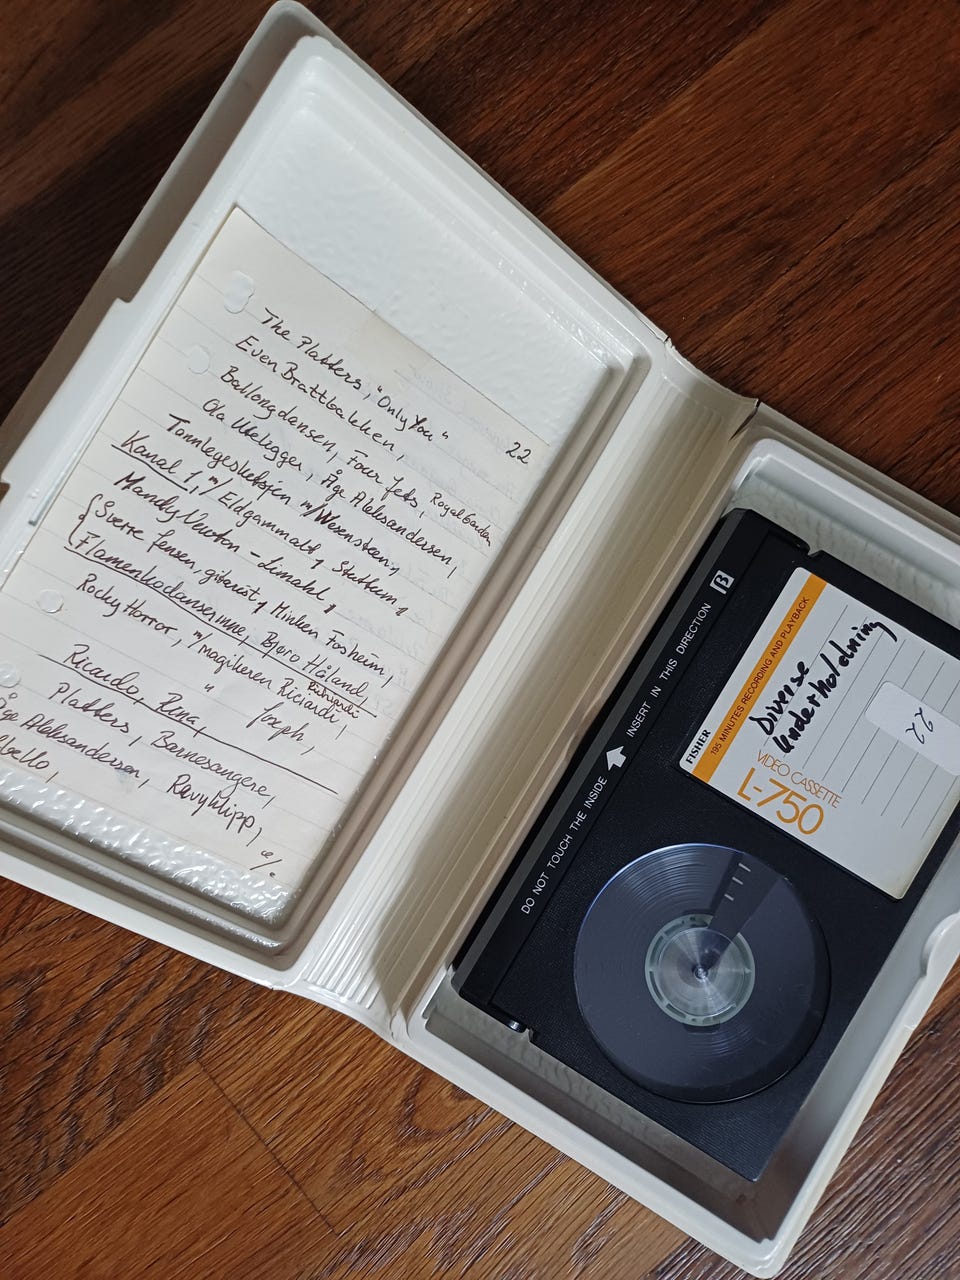 22
The Platters, "Only You"
Even Brattbakken,
Ballongdansen, Four Jets, Royal Garden
Ola Uteligger, Åge Aleksandersen,
Tannlegeskeksjen m/Wexenstein,
Kanal 1, m/Eldgammalt, Stuttum,
Mandy Newton - Limahl,
Sverre Jensen, gitarist, Minken Fosheim,
Flamenkodanserinne, Bjøro Håland,
Rocky Horror, m/magikeren Ricjardi,
Richiardi
" Joseph,
Ricardo, Rina,
Platters, Barnesangere,
Åge Aleksandersen, Ravyklipp,
DO NOT TOUCH THE INSIDE INSERT IN THIS DIRECTION B
FISHER 195 MINUTES RECORDING AND PLAYBACK
Diverse
underholdning
22
VIDEO CASSETTE
L-750